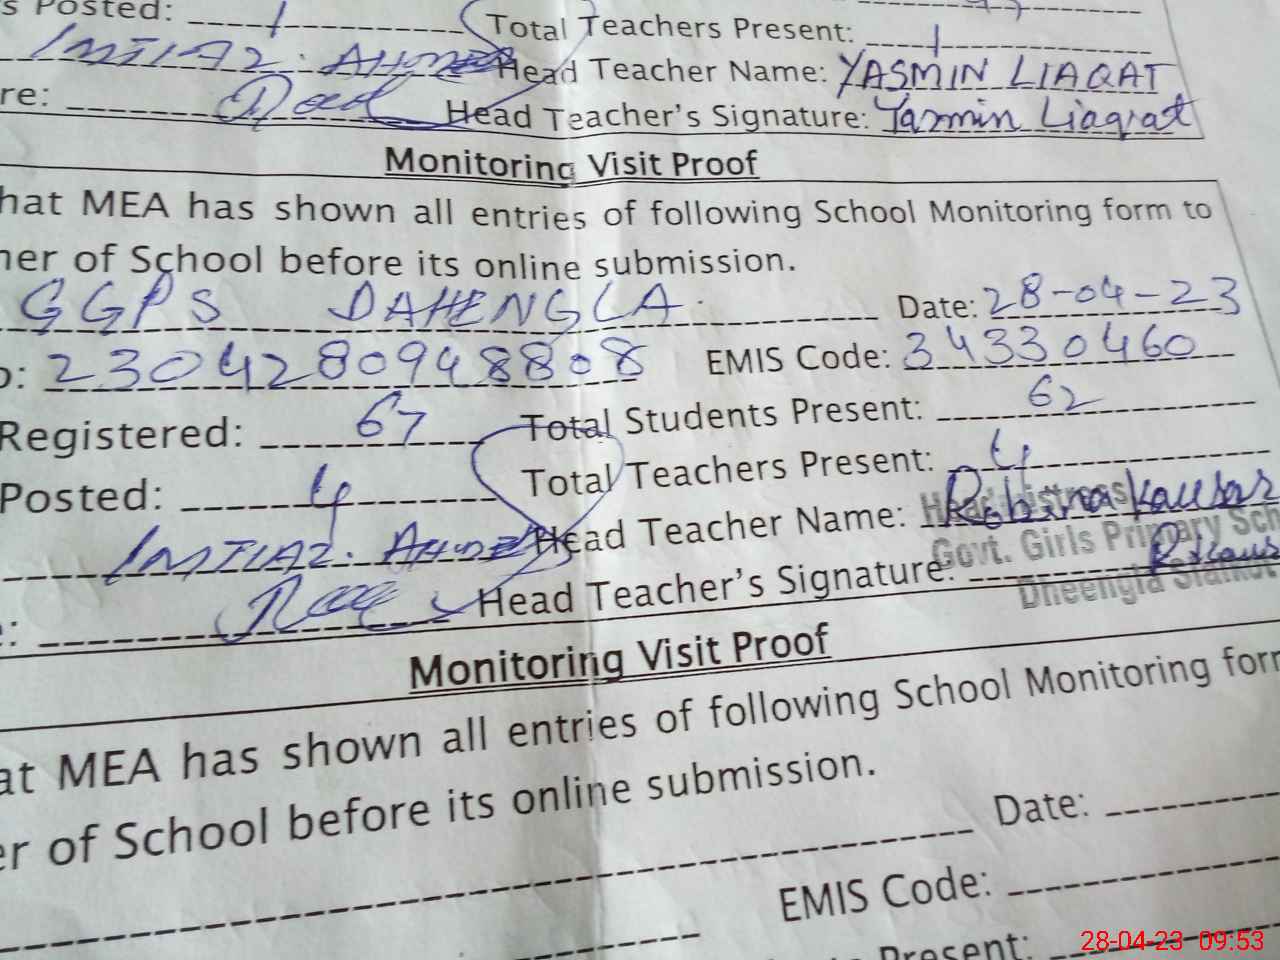 s Posted: 1 Total Teachers Present: 1
IMTIAZ. AHMED Head Teacher Name: YASMIN LIAQAT
re: Head Teacher's Signature: Yasmin Liaqat
Monitoring Visit Proof
hat MEA has shown all entries of following School Monitoring form to
her of School before its online submission.
GGPS DAHENGLA Date: 28-04-23
o: 230428094 8808 EMIS Code: 34330460
Registered: 67 Total Students Present: 62
Posted: 4 Total Teachers Present: 4
IMTIAZ. AHMED Head Teacher Name: Robina Kausar
Headmistress
Govt. Girls Primary Sch
e: Head Teacher's Signature: R.Kaus
Dheengla Sialkot
Monitoring Visit Proof
at MEA has shown all entries of following School Monitoring form
er of School before its online submission.
Date:
EMIS Code:
Present:
28-04-23 09:53